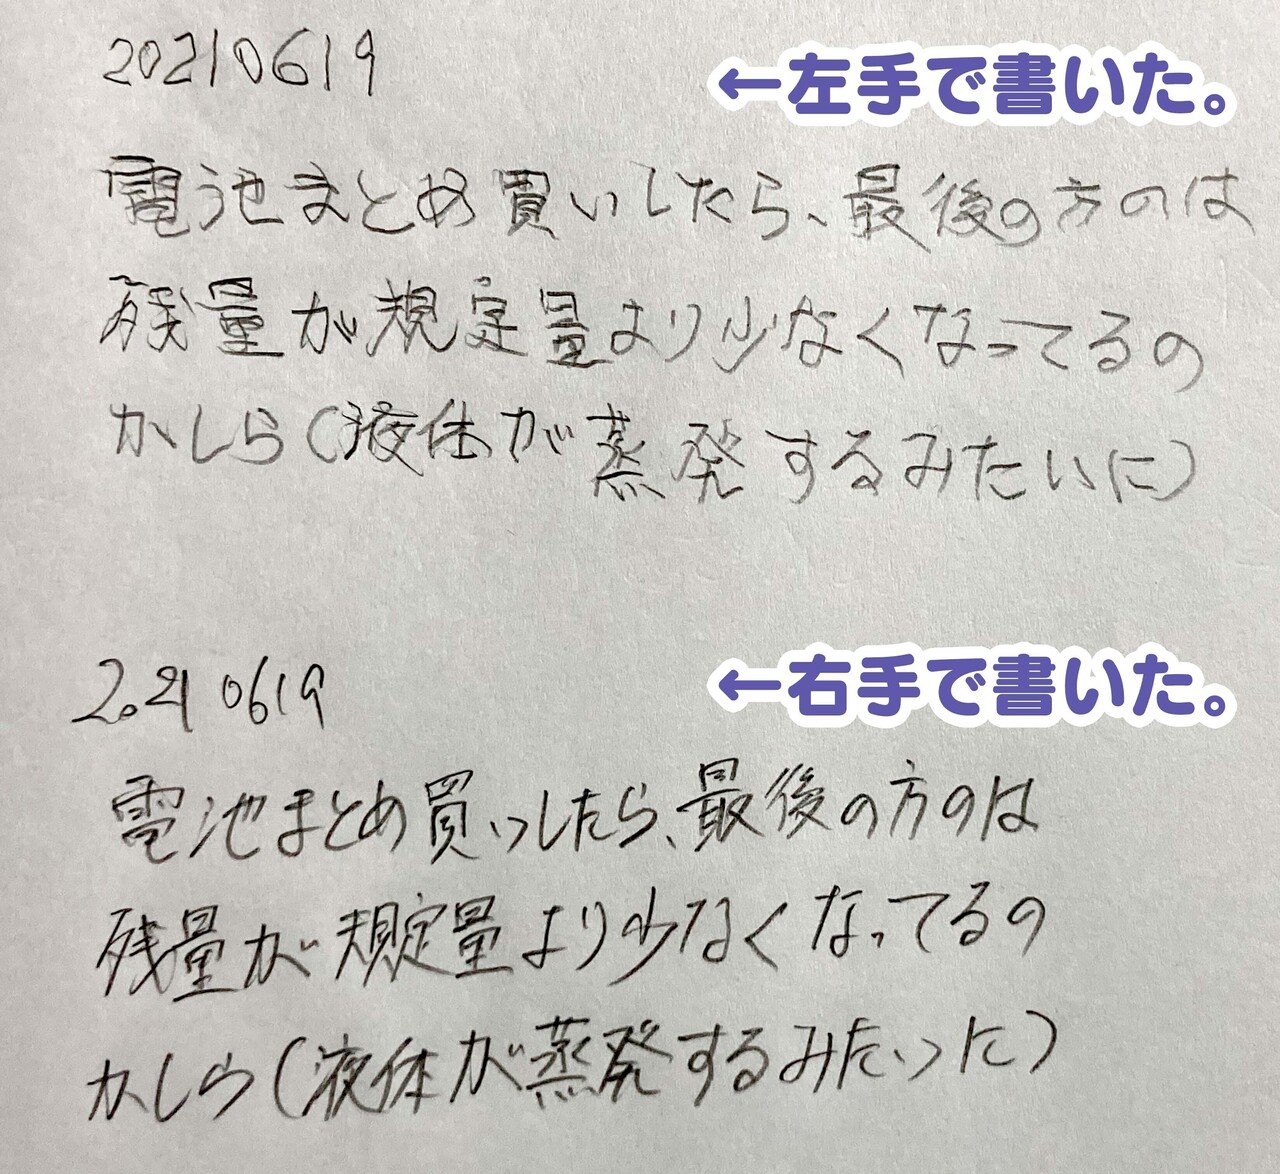 20210619
←左手で書いた。
電池まとめ買いしたら、最後の方のは
残量が規定量より少なくなってるの
かしら(液体が蒸発するみたいに)
20210619
←右手で書いた。
電池まとめ買いしたら、最後の方のは
残量が規定量より少なくなってるの
かしら(液体が蒸発するみたいに)